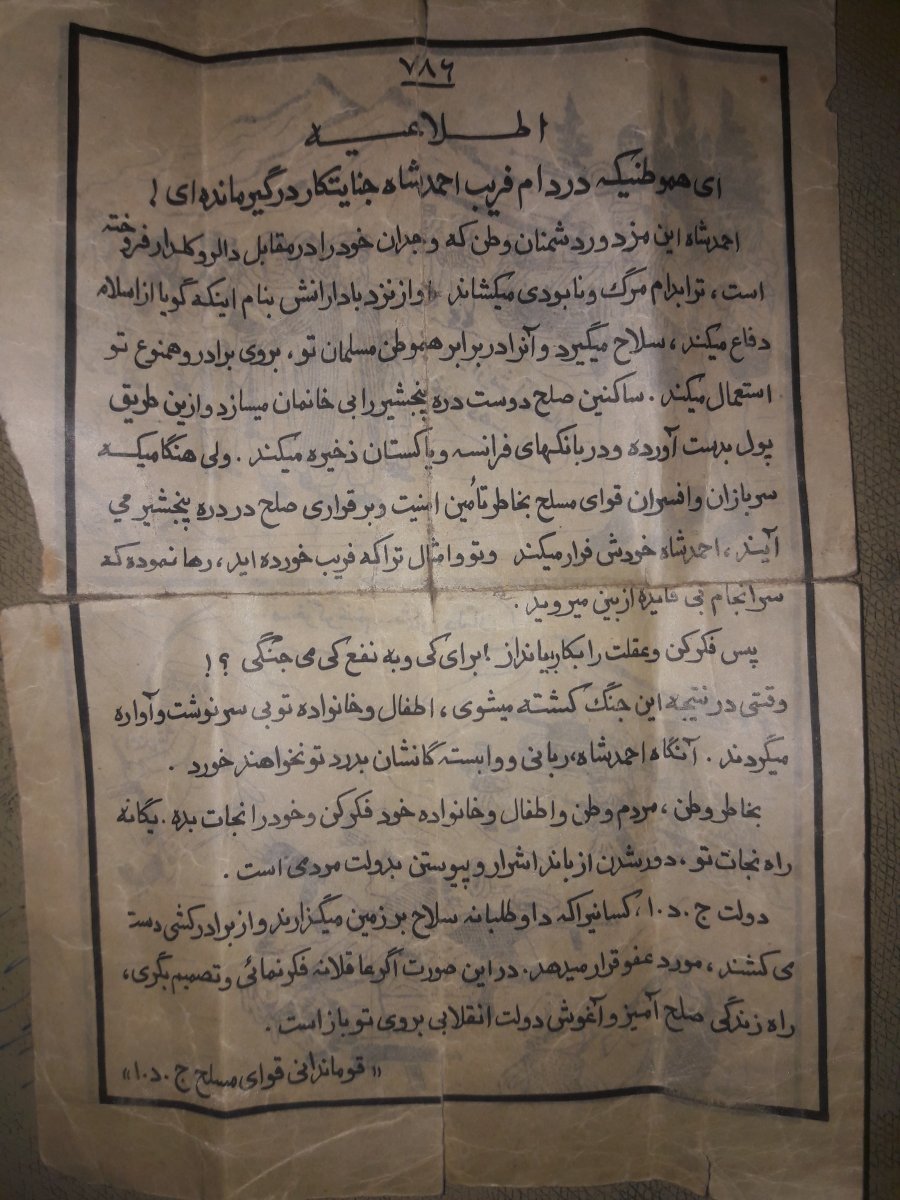 ۷۸۶
اطلاعیه
ای هموطنیکه در دام فریب احمدشاه جنایتکار درگیر مانده ای !
احمدشاه این مزدور دشمنان وطن که وجدان خود را در مقابل دالر و کلدار فروخته
است ، ترا بدام مرگ و نابودی میکشاند او از نزد بادارانش بنام اینکه گویا از اسلام
دفاع میکند ، سلاح میگیرد و آنرا در برابر هموطن مسلمان تو ، بروی برادر و همنوع تو
استعمال میکند . ساکنین صلح دوست دره پنجشیر را بی خانمان میسازد و ازین طریق
پول بدست آورده و در بانکهای فرانسه و پاکستان ذخیره میکند . ولی هنگامیکه
سربازان و افسران قوای مسلح بخاطر تأمین امنیت و برقراری صلح در دره پنجشیر می
آیند ، احمدشاه خودش فرار میکند و تو و امثال ترا که فریب خورده اید ، رها نموده که
سرانجام بی فایده از بین میروید .
پس فکر کن و عقلت را بکار بیانداز ! برای کی و به نفع کی می جنگی ؟ !
وقتی در نتیجه این جنگ کشته میشوی ، اطفال و خانواده تو بی سرنوشت و آواره
میگردند . آنگاه احمدشاه ، ربانی و وابسته گانشان بدرد تو نخواهند خورد .
بخاطر وطن ، مردم وطن و اطفال و خانواده خود فکر کن و خود را نجات بده . یگانه
راه نجات تو ، دور شدن از باند اشرار و پیوستن بدولت مردمی است .
دولت ج . د . ا ، کسانیرا که داوطلبانه سلاح بر زمین میگزارند و از برادرکشی دست
می کشند ، مورد عفو قرار میدهد . در این صورت اگر عاقلانه فکر نمائی و تصمیم بگری ،
راه زندگی صلح آمیز و آغوش دولت انقلابی بروی تو باز است .
« قوماندانی قوای مسلح ج . د . ا »